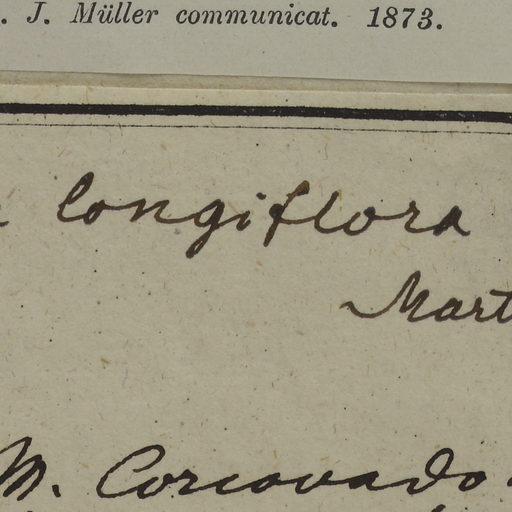 . J. Müller communicat. 1873.
longiflora
Mart
M. Corcovado.